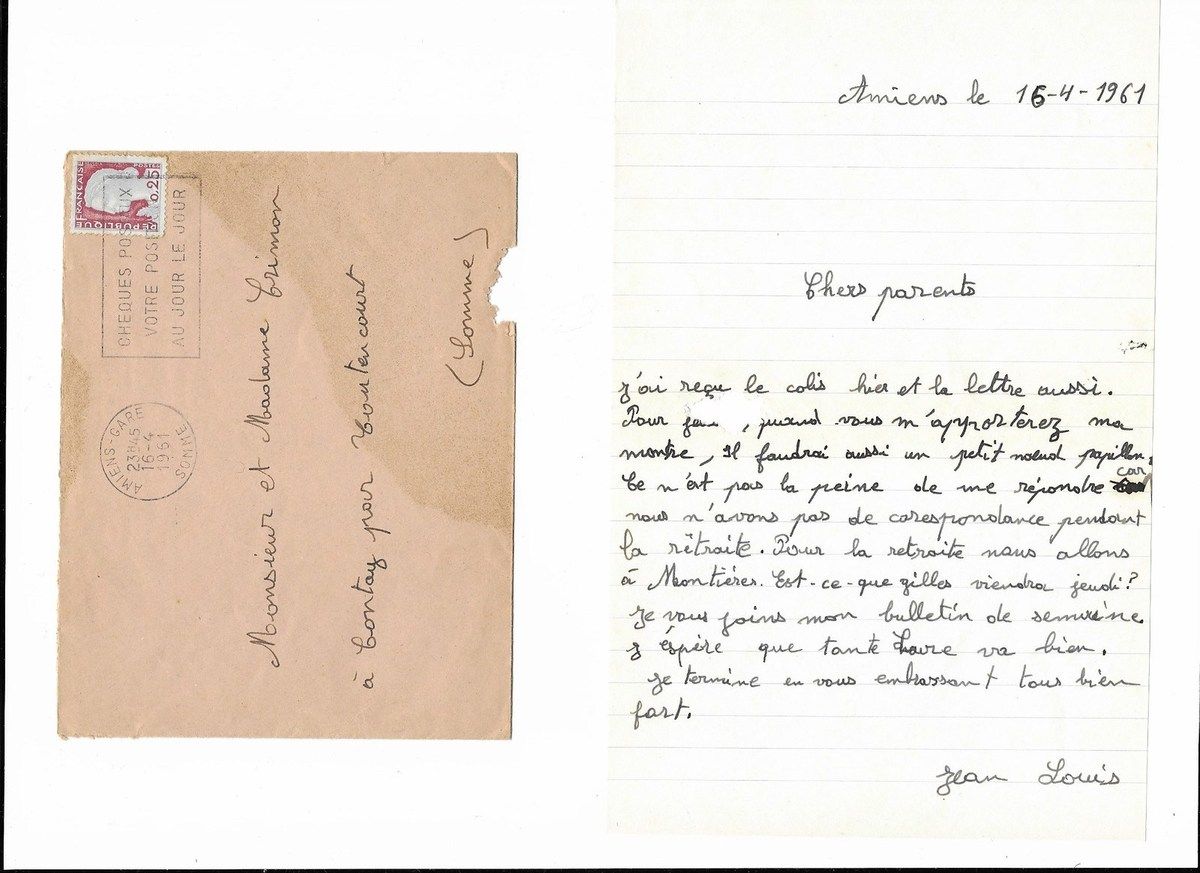 REPUBLIQUE FRANCAISE
POSTES
0,25
CHEQUES POSTAUX
VOTRE POSE
AU JOUR LE JOUR
AMIENS-GARE
23H45
16-4
1961
SOMME
Monsieur et Madame Crimon
à Contay pour Contencourt
(Somme)
Amiens le 16-4-1961
Chers parents
J'ai reçu le colis hier et la lettre aussi.
Pour , quand vous m'apporterez ma
montre, Il faudrai aussi un petit noeud papillon.
Ce n'est pas la peine de me répondre car
nous n'avons pas de corespondance pendant
la rêtraite. Pour la retraite nous allons
à Montiéres. Est-ce-que gilles viendra jeudi?
Je vous joins mon bulletin de semaine.
J'éspère que tante va bien.
Je termine en vous embrassant tous bien
fort.
Jean Louis